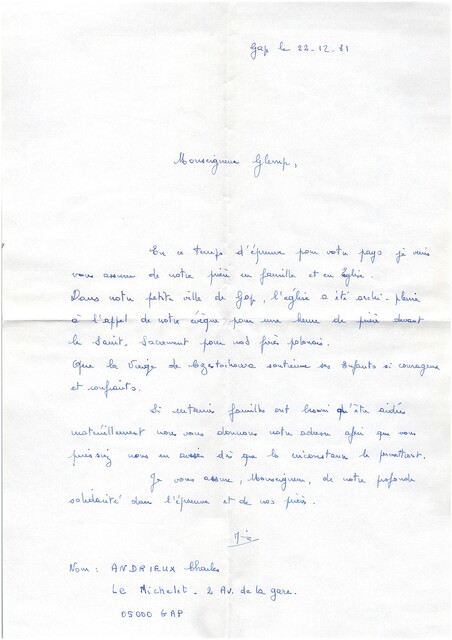 Gap le 22-12-81
Monseigneur Glemp,
En ce temps d'épreuve pour votre pays je viens
vous assurer de notre prière en famille et en Eglise.
Dans notre petite ville de Gap, l'église a été archi-pleine
à l'appel de notre évêque pour une heure de prière devant
le Saint-Sacrement pour nos frères polonais.
Que la Vierge de Czestochowa soutienne ses Enfants si courageux
et confiants.
Si certaines familles ont besoin d'être aidées
matériellement nous vous donnons notre adresse afin que vous
puissiez nous en aviser dès que les circonstances le permettront.
Je vous assure, Monseigneur, de notre profonde
solidarité dans l'épreuve et de nos prières.
Nom : ANDRIEUX Charles
Le Michelet - 2 Av. de la gare.
05000 GAP